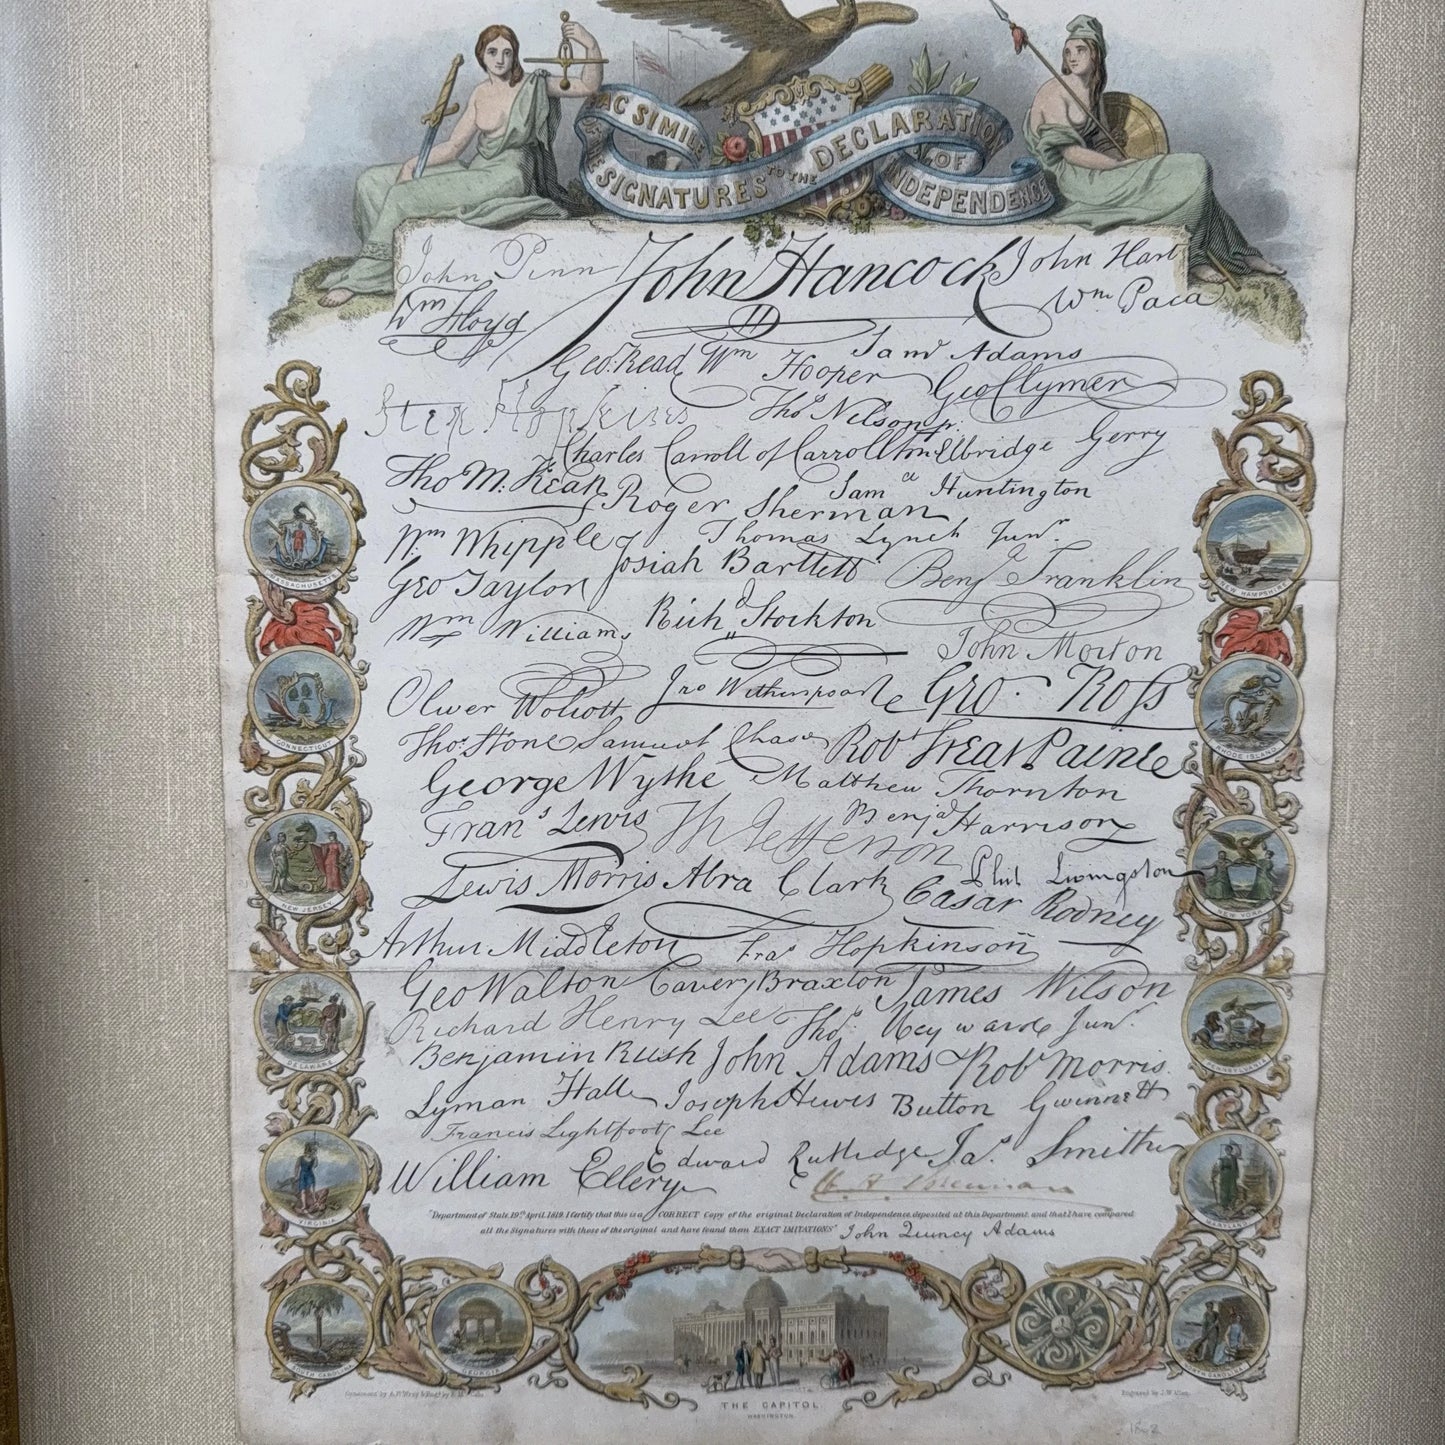 FAC SIMILE
OF THE
SIGNATURES TO THE DECLARATION
OF
INDEPENDENCE
John Penn John Hancock John Hart
Wm Floyd Wm Paca
Geo: Read Wm Hooper Sam' Adams
Geo Clymer
Step Hopkins Thos Nelson jr.
Charles Carroll of Carrollton Elbridge Gerry
Tho M: Kean Roger Sherman Sam el Huntington
Wm Whipple Thomas Lynch Junr.
Geo Taylor Josiah Bartlett Benj Franklin
Wm Williams Rich d Stockton
John Morton
Oliver Wolcott Jno Witherspoon Geo. Ross
Thos. Stone Samuel Chase Rob t Treat Paine
George Wythe Matthew Thornton
Fran s Lewis Th Jefferson Benj a Harrison
Lewis Morris Abra Clark Phil Livingston
Cæsar Rodney
Arthur Middleton Fra s Hopkinson
Geo Walton Carter Braxton James Wilson
Richard Henry Lee Tho s. Heyward Jun r.
Benjamin Rush John Adams Rob t Morris.
Lyman Hall Joseph Hewes Button Gwinnett
Francis Lightfoot Lee
William Ellery Edward Rutledge Ja s. Smith
"Department of State, 19th April, 1819. I Certify that this is a CORRECT Copy of the original Declaration of Independence deposited at this Department and that I have compared
all the Signatures with those of the original and have found them EXACT IMITATIONS" John Quincy Adams
MASSACHUSETTS
NEW HAMPSHIRE
CONNECTICUT
RHODE ISLAND
NEW JERSEY
NEW YORK
DELAWARE
PENNSYLVANIA
VIRGINIA
MARYLAND
SOUTH CAROLINA
GEORGIA
NORTH CAROLINA
THE CAPITOL
WASHINGTON
Engraved by J.W. Allen